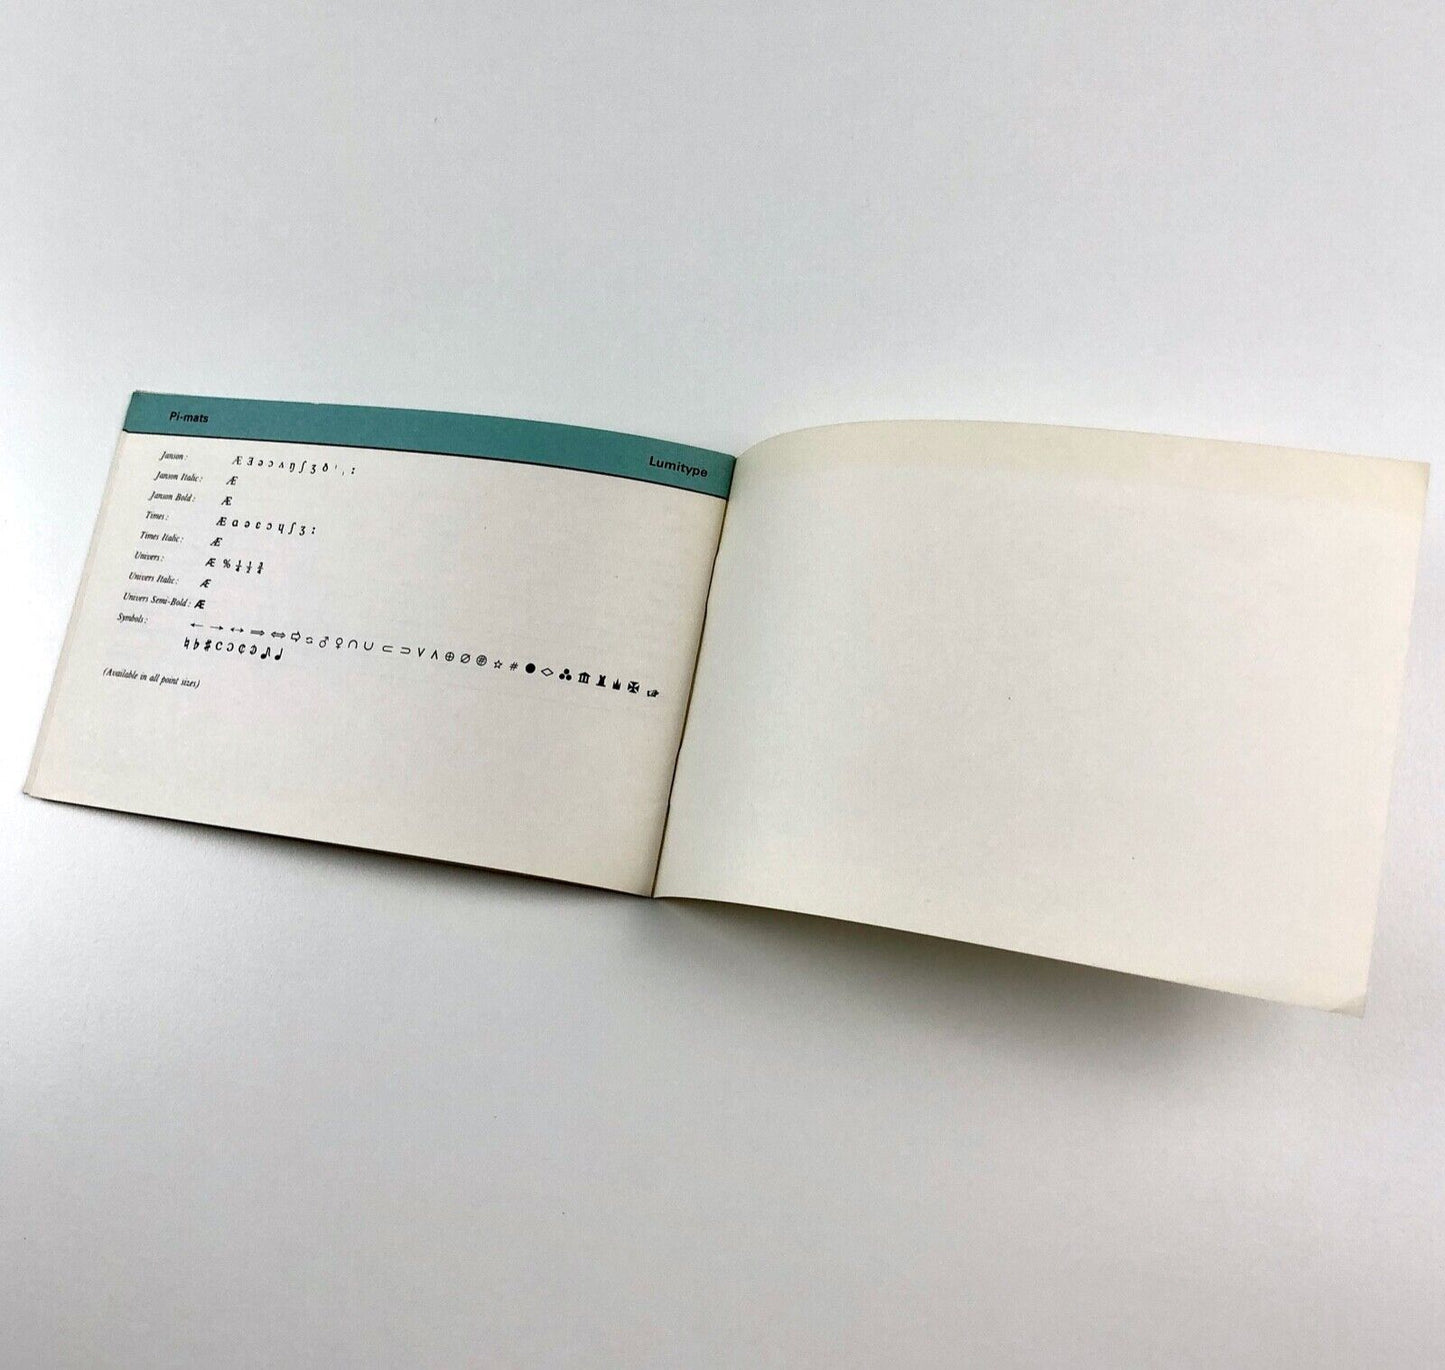 Pi-mats
Lumitype
Janson: Æ Ǝ ə ɔ ʌ ŋ ʃ ʒ ð ˈ ˌ ː
Janson Italic: Æ
Janson Bold: Æ
Times: Æ ɑ ə ɛ ɔ ɥ ʃ ʒ ː
Times Italic: Æ
Univers: Æ % ¼ ½ ¾
Univers Italic: Æ
Univers Semi-Bold: Æ
Symbols: ← → ↔ ⇒ ⇔ ♂ ♀ ∩ ∪ ⊂ ⊃ ∨ ∧ ⊕ ∅ ☆ # ● ◇ ✠ ☞
♮ ♭ ♯ ♪ ♩
(Available in all point sizes)